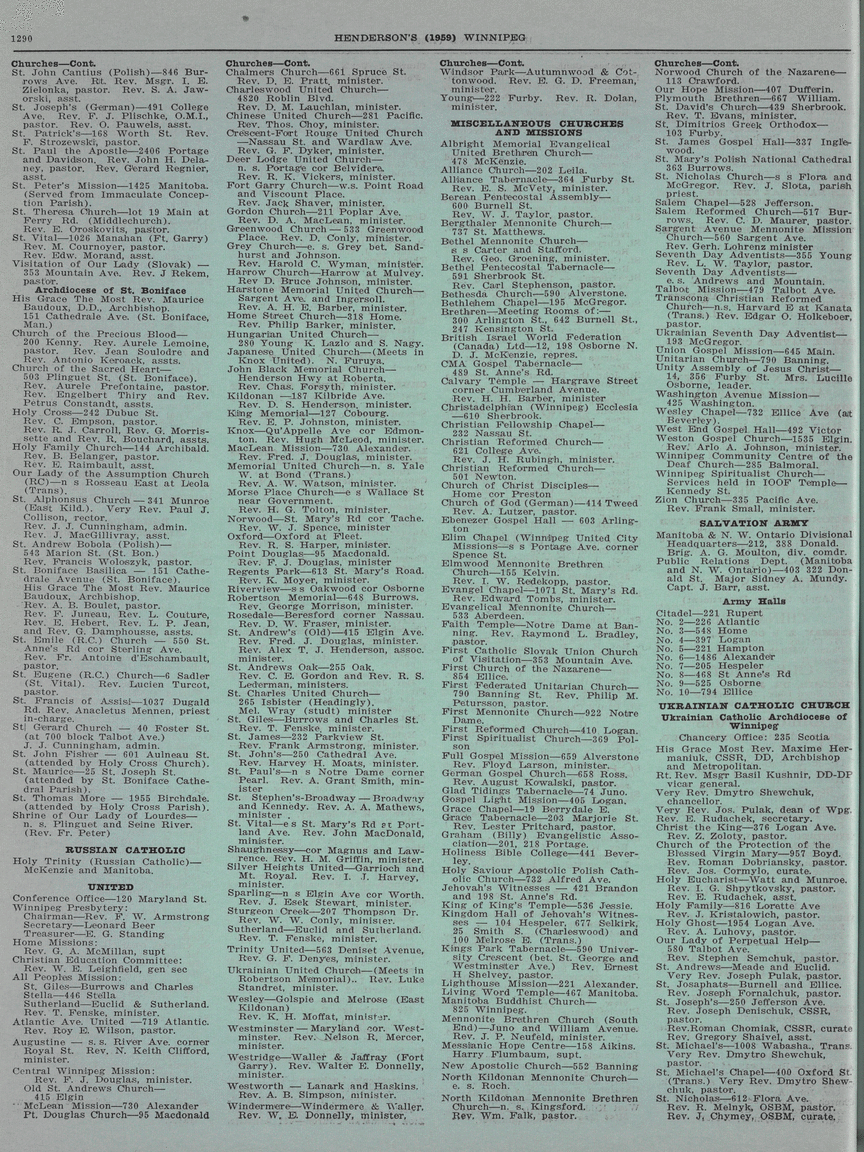 1290
HENDERSON'S (1959) WINNIPEG
Churches—Cont.
St. John Cantius (Polish)—846 Bur-
rows Ave. Rt. Rev. Msgr. I. E.
Zielonka, pastor. Rev. S. A. Jaw-
orski, asst.
St. Joseph's (German)—491 College
Ave. Rev. F. J. Plischke, O.M.I.,
pastor. Rev. O. Pauwels, asst.
St. Patrick's—168 Worth St. Rev.
F. Strozewski, pastor.
St. Paul the Apostle—2406 Portage
and Davidson. Rev. John H. Dela-
ney, pastor. Rev. Gerard Regnier,
asst.
St. Peter's Mission—1425 Manitoba.
(Served from Immaculate Concep-
tion Parish).
St. Theresa Church—lot 19 Main at
Ferry Rd. (Middlechurch).
Rev. E. Oroskovits, pastor.
St. Vital—1026 Manahan (Ft. Garry)
Rev. M. Cournoyer, pastor.
Rev. Edw. Morand, asst.
Visitation of Our Lady (Slovak) —
353 Mountain Ave. Rev. J Rekem,
pastor.
Archdiocese of St. Boniface
His Grace The Most Rev. Maurice
Baudoux, D.D., Archbishop.
151 Cathedrale Ave. (St. Boniface,
Man.)
Church of the Precious Blood—
200 Kenny. Rev. Aurele Lemoine,
pastor. Rev. Jean Soulodre and
Rev. Antonio Keroack, assts.
Church of the Sacred Heart—
503 Plinguet St. (St. Boniface).
Rev. Aurele Prefontaine, pastor.
Rev. Engelbert Thiry and Rev.
Petrus Constandt, assts.
Holy Cross—242 Dubuc St.
Rev. C. Empson, pastor.
Rev. R. J. Carroll, Rev. G. Morris-
sette and Rev. R. Bouchard, assts.
Holy Family Church—144 Archibald.
Rev. B. Belanger, pastor.
Rev. E. Raimbault, asst.
Our Lady of the Assumption Church
(RC)—n s Rosseau East at Leola
(Trans).
St. Alphonsus Church — 341 Munroe
(East Kild.). Very Rev. Paul J.
Collison, rector.
Rev. J. J. Cunningham, admin.
Rev. J. MacGillivray, asst.
St. Andrew Bobola (Polish)—
543 Marion St. (St. Bon.)
Rev. Francis Woloszyk, pastor.
St. Boniface Basilica — 151 Cathe-
drale Avenue (St. Boniface).
His Grace The Most Rev. Maurice
Baudoux, Archbishop.
Rev. A. B. Boulet, pastor.
Rev. F. Juneau, Rev. L. Couture,
Rev. E. Hebert, Rev. L. P. Jean,
and Rev. G. Damphousse, assts.
St. Emile (R.C.) Church — 550 St.
Anne's Rd cor Sterling Ave.
Rev. Fr. Antoine d'Eschambault,
pastor.
St. Eugene (R.C.) Church—6 Sadler
(St. Vital). Rev. Lucien Turcot,
pastor.
St. Francis of Assisi—1037 Dugald
Rd. Rev. Anacletus Mennen, priest
in-charge.
St. Gerard Church — 40 Foster St.
(at 700 block Talbot Ave.)
J. J. Cunningham, admin.
St. John Fisher — 601 Aulneau St.
(attended by Holy Cross Church).
St. Maurice—25 St. Joseph St.
(attended by St. Boniface Cathe-
dral Parish).
St. Thomas More — 1955 Birchdale.
(attended by Holy Cross Parish).
Shrine of Our Lady of Lourdes—
n. s. Plinguet and Seine River.
(Rev. Fr. Peter)
RUSSIAN CATHOLIC
Holy Trinity (Russian Catholic)—
McKenzie and Manitoba.
UNITED
Conference Office—120 Maryland St.
Winnipeg Presbytery:
Chairman—Rev. F. W. Armstrong
Secretary—Leonard Beer
Treasurer—E. G. Standing
Home Missions:
Rev. G. A. McMillan, supt
Christian Education Committee:
Rev. W. E. Leighfield, gen sec
All Peoples Mission:
St. Giles—Burrows and Charles
Stella—446 Stella
Sutherland—Euclid & Sutherland.
Rev. T. Fenske, minister.
Atlantic Ave. United —719 Atlantic.
Rev. Roy E. Wilson, pastor.
Augustine — s. s. River Ave. corner
Royal St. Rev. N. Keith Clifford,
minister.
Central Winnipeg Mission:
Rev. F. J. Douglas, minister.
Old St. Andrews Church—
415 Elgin
McLean Mission—730 Alexander
Pt. Douglas Church—95 Macdonald
Chalmers Church—661 Spruce St.
Rev. D. E. Pratt, minister.
Charleswood United Church—
4820 Roblin Blvd.
Rev. D. M. Lauchlan, minister.
Chinese United Church—281 Pacific.
Rev. Thos. Choy, minister.
Crescent-Fort Rouge United Church
—Nassau St. and Wardlaw Ave.
Rev. G. F. Dyker, minister.
Deer Lodge United Church—
n. s. Portage cor Belvidere.
Rev. R. K. Vickers, minister.
Fort Garry Church—w.s. Point Road
and Viscount Place.
Rev. Jack Shaver, minister.
Gordon Church—211 Poplar Ave.
Rev. D. A. MacLean, minister.
Greenwood Church — 533 Greenwood
Place. Rev. D. Conly, minister.
Grey Church—e. s. Grey bet. Sand-
hurst and Johnson.
Rev. Harold C. Wyman, minister.
Harrow Church—Harrow at Mulvey.
Rev D. Bruce Johnson, minister.
Harstone Memorial United Church—
Sargent Ave. and Ingersoll.
Rev. A. H. E. Barber, minister.
Home Street Church—318 Home.
Rev. Philip Barker, minister.
Hungarian United Church—
280 Young K. Lazlo and S. Nagy.
Japanese United Church—(Meets in
Knox United). N. Furuya.
John Black Memorial Church—
Henderson Hwy at Roberta.
Rev. Chas. Forsyth, minister.
Kildonan —187 Kilbride Ave.
Rev. D. S. Henderson, minister.
King Memorial—127 Cobourg.
Rev. E. P. Johnston, minister.
Knox—Qu'Appelle Ave cor Edmon-
ton. Rev. Hugh McLeod, minister.
MacLean Mission—730 Alexander.
Rev. Fred. J. Douglas, minister.
Memorial United Church—n. s. Yale
W. at Bond (Trans.)
Rev. A. W. Watson, minister.
Morse Place Church—e s Wallace St
near Government.
Rev. H. G. Tolton, minister.
Norwood—St. Mary's Rd cor Tache.
Rev. W. J. Spence, minister
Oxford—Oxford at Fleet.
Rev. R. S. Harper, minister.
Point Douglas—95 Macdonald.
Rev. F. J. Douglas, minister
Regents Park—613 St. Mary's Road.
Rev. K. Moyer, minister.
Riverview—s s Oakwood cor Osborne
Robertson Memorial—648 Burrows.
Rev. George Morrison, minister.
Rosedale—Beresford corner Nassau.
Rev. D. W. Fraser, minister.
St. Andrew's (Old)—415 Elgin Ave.
Rev. Fred. J. Douglas, minister.
Rev. Alex T. J. Henderson, assoc.
minister.
St. Andrews Oak—255 Oak.
Rev. C. E. Gordon and Rev. R. S.
Lederman, ministers.
St. Charles United Church—
265 Isbister (Headingly).
Mel. Wray (studt) minister
St. Giles—Burrows and Charles St.
Rev. T. Fenske, minister.
St. James—325 Parkview St.
Rev. Frank Armstrong, minister.
St. John's—250 Cathedral Ave.
Rev. Harvey H. Moats, minister.
St. Paul's—n s Notre Dame corner
Pearl. Rev. A. Grant Smith, min-
ister
St. Stephen's-Broadway — Broadway
and Kennedy. Rev. A. A. Mathews,
minister .
St. Vital—e s St. Mary's Rd at Port-
land Ave. Rev. John MacDonald,
minister.
Shaughnessy—cor Magnus and Law-
rence. Rev. H. M. Griffin, minister.
Silver Heights United—Garrioch and
Mt. Royal. Rev. I. J. Harvey,
minister.
Sparling—n s Elgin Ave cor Worth.
Rev. J. Esek Stewart, minister.
Sturgeon Creek—207 Thompson Dr.
Rev. W. W. Conly, minister.
Sutherland—Euclid and Sutherland.
Rev. T. Fenske, minister.
Trinity United—563 Deniset Avenue,
Rev. G. F. Denyes, minister.
Ukrainian United Church—(Meets in
Robertson Memorial).. Rev. Luke
Standret, minister.
Wesley—Golspie and Melrose (East
Kildonan)
Rev. K. H. Moffat, minister.
Westminster — Maryland cor. West-
minster. Rev. Nelson R. Mercer,
minister.
Westridge—Waller & Jaffray (Fort
Garry). Rev. Walter E. Donnelly,
minister.
Westworth — Lanark and Haskins.
Rev. A. B. Simpson, minister.
Windermere—Windermere & Waller.
Rev. W. E. Donnelly, minister.
Churches—Cont.
Windsor Park—Autumnwood & Cot-
tonwood. Rev. E. G. D. Freeman,
minister.
Young—222 Furby. Rev. R. Dolan,
minister.
MISCELLANEOUS CHURCHES
AND MISSIONS
Albright Memorial Evangelical
United Brethren Church—
478 McKenzie.
Alliance Church—202 Leila.
Alliance Tabernacle—364 Furby St.
Rev. E. S. McVety, minister.
Berean Pentecostal Assembly—
600 Burnell St.
Rev. W. J. Taylor, pastor.
Bergthaler Mennonite Church—
737 St. Matthews.
Bethel Mennonite Church—
s s Carter and Stafford.
Rev. Geo. Groening, minister.
Bethel Pentecostal Tabernacle—
591 Sherbrook St.
Rev. Carl Stephenson, pastor.
Bethesda Church—590 Alverstone.
Bethlehem Chapel—195 McGregor.
Brethren—Meeting Rooms of:—
300 Arlington St., 642 Burnell St.,
247 Kensington St.
British Israel World Federation
(Canada) Ltd—12, 198 Osborne N.
D. J. McKenzie, repres.
CMA Gospel Tabernacle—
489 St. Anne's Rd.
Calvary Temple — Hargrave Street
corner Cumberland Avenue.
Rev. H. H. Barber, minister
Christadelphian (Winnipeg) Ecclesia
—610 Sherbrook.
Christian Fellowship Chapel—
232 Nassau St.
Christian Reformed Church—
621 College Ave.
Rev. J. H. Rubingh, minister.
Christian Reformed Church—
501 Newton.
Church of Christ Disciples—
Home cor Preston
Church of God (German)—414 Tweed
Rev. A. Lutzer, pastor.
Ebenezer Gospel Hall — 603 Arling-
ton
Elim Chapel (Winnipeg United City
Missions—s s Portage Ave. corner
Spence St.
Elmwood Mennonite Brethren
Church—155 Kelvin.
Rev. I. W. Redekopp, pastor.
Evangel Chapel—1071 St. Mary's Rd.
Rev. Edward Tombs, minister.
Evangelical Mennonite Church—
533 Aberdeen.
Faith Temple—Notre Dame at Ban-
ning. Rev. Raymond L. Bradley,
pastor.
First Catholic Slovak Union Church
of Visitation—353 Mountain Ave.
First Church of the Nazarene—
854 Ellice.
First Federated Unitarian Church—
790 Banning St. Rev. Philip M.
Petursson, pastor.
First Mennonite Church—922 Notre
Dame.
First Reformed Church—410 Logan.
First Spiritualist Church—369 Pol-
son
Full Gospel Mission—659 Alverstone
Rev. Floyd Larson, minister.
German Gospel Church—658 Ross.
Rev. August Kowalski, pastor.
Glad Tidings Tabernacle—74 Juno.
Gospel Light Mission—405 Logan.
Grace Chapel—19 Berrydale E.
Grace Tabernacle—203 Marjorie St.
Rev. Lester Pritchard, pastor.
Graham (Billy) Evangelistic Asso-
ciation—201, 218 Portage.
Holiness Bible College—441 Bever-
ley.
Holy Saviour Apostolic Polish Cath-
olic Church—732 Alfred Ave.
Jehovah's Witnesses — 421 Brandon
and 198 St. Anne's Rd.
King of King's Temple—536 Jessie.
Kingdom Hall of Jehovah's Witnes-
ses — 104 Hespeler, 677 Selkirk,
25 Smith S. (Charleswood) and
100 Melrose E. (Trans.)
Kings Park Tabernacle—590 Univer-
sity Crescent (bet. St. George and
Westminster Ave.) Rev. Ernest
H Shelvey, pastor.
Lighthouse Mission—221 Alexander.
Living Word Temple—467 Manitoba.
Manitoba Buddhist Church—
825 Winnipeg.
Mennonite Brethren Church (South
End)—Juno and William Avenue.
Rev. J. P. Neufeld, minister.
Messianic Hope Centre—158 Aikins.
Harry Flumbaum, supt.
New Apostolic Church—552 Banning
North Kildonan Mennonite Church—
e. s. Roch.
North Kildonan Mennonite Brethren
Church—n. s. Kingsford.
Rev. Wm. Falk, pastor.
Churches—Cont.
Norwood Church of the Nazarene—
113 Crawford.
Our Hope Mission—407 Dufferin.
Plymouth Brethren—667 William.
St. David's Church—439 Sherbrook.
Rev. T. Evans, minister.
St. Dimitrios Greek Orthodox—
103 Furby.
St. James Gospel Hall—337 Ingle-
wood.
St. Mary's Polish National Cathedral
363 Burrows.
St. Nicholas Church—s s Flora and
McGregor. Rev. J. Slota, parish
priest.
Salem Chapel—528 Jefferson.
Salem Reformed Church—517 Bur-
rows. Rev. C. D. Maurer, pastor.
Sargent Avenue Mennonite Mission
Church—560 Sargent Ave.
Rev. Gerh. Lohrenz minister
Seventh Day Adventists—355 Young
Rev. L. W. Taylor, pastor.
Seventh Day Adventists—
e.s. Andrews and Mountain.
Talbot Mission—479 Talbot Ave.
Transcona Christian Reformed
Church—n.s. Harvard E at Kanata
(Trans.) Rev. Edgar O. Holkeboer,
pastor.
Ukrainian Seventh Day Adventist—
193 McGregor.
Union Gospel Mission—645 Main.
Unitarian Church—790 Banning.
Unity Assembly of Jesus Christ—
14, 356 Furby St. Mrs. Lucille
Osborne, leader.
Washington Avenue Mission—
425 Washington.
Wesley Chapel—732 Ellice Ave (at
Beverley).
West End Gospel Hall—492 Victor
Weston Gospel Church—1535 Elgin.
Rev. Arlo A. Johnson, minister.
Winnipeg Community Centre of the
Deaf Church—285 Balmoral.
Winnipeg Spiritualist Church—
Services held in IOOF Temple—
Kennedy St.
Zion Church—335 Pacific Ave.
Rev. Frank Small, minister.
SALVATION ARMY
Manitoba & N. W. Ontario Divisional
Headquarters—212, 388 Donald.
Brig. A. G. Moulton, div. comdr.
Public Relations Dept. (Manitoba
and N. W. Ontario)—403 322 Don-
ald St. Major Sidney A. Mundy.
Capt. J. Barr, asst.
Army Halls
Citadel—221 Rupert
No. 2—226 Atlantic
No. 3—548 Home
No. 4—397 Logan
No. 5—221 Hampton
No. 6—1486 Alexander
No. 7—205 Hespeler
No. 8—468 St Anne's Rd
No. 9—525 Osborne
No. 10—794 Ellice
UKRAINIAN CATHOLIC CHURCH
Ukrainian Catholic Archdiocese of
Winnipeg
Chancery Office: 235 Scotia
His Grace Most Rev. Maxime Her-
maniuk, CSSR, DD, Archbishop
and Metropolitan.
Rt. Rev. Msgr Basil Kushnir, DD-DP
vicar general.
Very Rev Dmytro Shewchuk,
chancellor.
Very Rev. Jos. Pulak, dean of Wpg.
Rev. E. Rudachek, secretary.
Christ the King—376 Logan Ave.
Rev. Z. Zoloty, pastor.
Church of the Protection of the
Blessed Virgin Mary—957 Boyd.
Rev. Roman Dobriansky, pastor.
Rev. Jos. Cormylo, curate.
Holy Eucharist—Watt and Munroe.
Rev. I. G. Shpytkovsky, pastor.
Rev. E. Rudachek, asst.
Holy Family—816 Lorette Ave
Rev. J. Kristalowich, pastor.
Holy Ghost—1954 Logan Ave.
Rev. A. Luhovy, pastor.
Our Lady of Perpetual Help—
580 Talbot Ave.
Rev. Stephen Semchuk, pastor.
St. Andrews—Meade and Euclid.
Very Rev. Joseph Pulak, pastor.
St. Josaphats—Burnell and Ellice.
Rev. Joseph Fornalchuk, pastor.
St. Joseph's—250 Jefferson Ave.
Rev. Joseph Denischuk, CSSR,
pastor.
Rev.Roman Chomiak, CSSR, curate
Rev. Gregory Shalvel, asst.
St. Michael's—1008 Wabasha., Trans.
Very Rev. Dmytro Shewchuk,
pastor.
St. Michael's Chapel—400 Oxford St.
(Trans.) Very Rev. Dmytro Shew-
chuk, pastor.
St. Nicholas—612 Flora Ave.
Rev. R. Melnyk, OSBM, pastor.
Rev. J. Chymey, OSBM, curate.